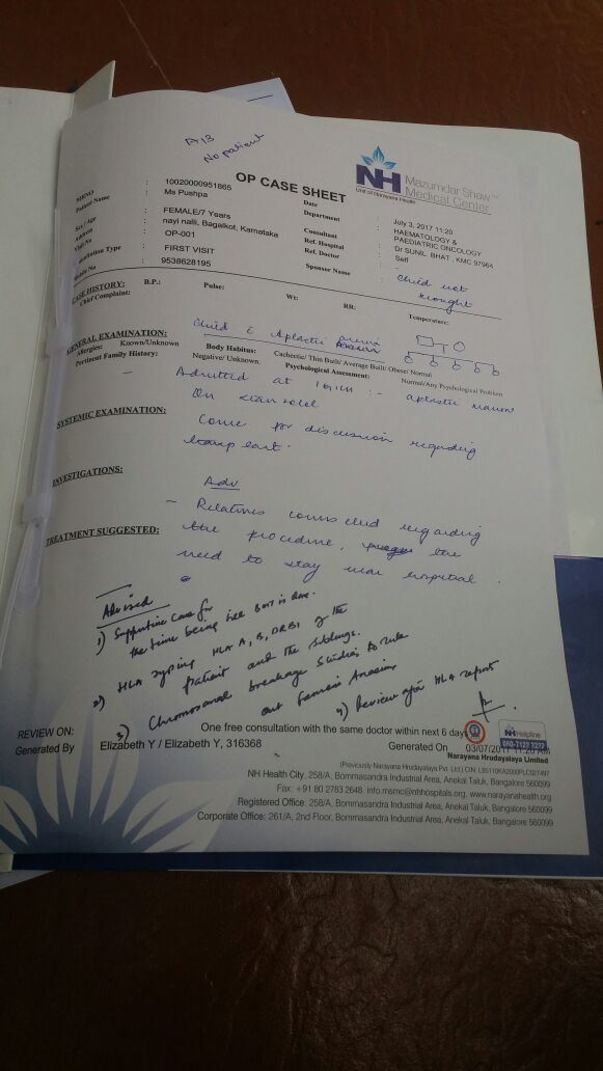 A13
No patient
NH Mazumdar Shaw™
Medical Center
Unit of Narayana Health
OP CASE SHEET
MRNO : 10020000951865
Patient Name : Ms Pushpa
Sex / Age : FEMALE/7 Years
Address : nayi nalli, Bagalkot, Karnataka
Visit No : OP-001
Consultation Type : FIRST VISIT
Mobile No : 9538628195
Date : July 3, 2017 11:20
Department : HAEMATOLOGY & PAEDIATRIC ONCOLOGY
Consultant : Dr SUNIL BHAT , KMC 97964
Ref. Hospital : Self
Ref. Doctor : -
Sponsor Name :
Child not
brought
CASE HISTORY: B.P.: Pulse: Wt: RR: Temperature:
Chief Complaint:
Child c Aplastic anemia
GENERAL EXAMINATION:
Allergies: Known/Unknown Body Habitus: Cachectic/ Thin Built/ Average Built/ Obese/ Normal
Pertinent Family History: Negative/ Unknown. Psychological Assessment: Normal/Any Psychological Problem
- Admitted at :- aplastic
On
SYSTEMIC EXAMINATION:
Come for discussion regarding
INVESTIGATIONS:
Adv
- Relatives counselled regarding
TREATMENT SUGGESTED:
the procedure, the
need to stay near hospital.
Advised
1) Supportive care for
the time being till BMT is done.
2) HLA typing HLA A, B, DRB1 of the
patient and the siblings.
3) Chromosomal breakage studies to rule
out Fanconi Anaemia
4) Review after HLA report
REVIEW ON: One free consultation with the same doctor within next 6 days
Generated By Elizabeth Y / Elizabeth Y, 316368 Generated On 03/07/2017
NH Helpline
Narayana Hrudayalaya Limited
NH Health City, 258/A, Bommasandra Industrial Area, Anekal Taluk, Bangalore 560099
Fax: +91 80 2783 2648 info.msmc@nhhospitals.org, www.narayanahealth.org
Registered Office: 258/A, Bommasandra Industrial Area, Anekal Taluk, Bangalore 560099
Corporate Office: 261/A, 2nd Floor, Bommasandra Industrial Area, Anekal Taluk, Bangalore 560099